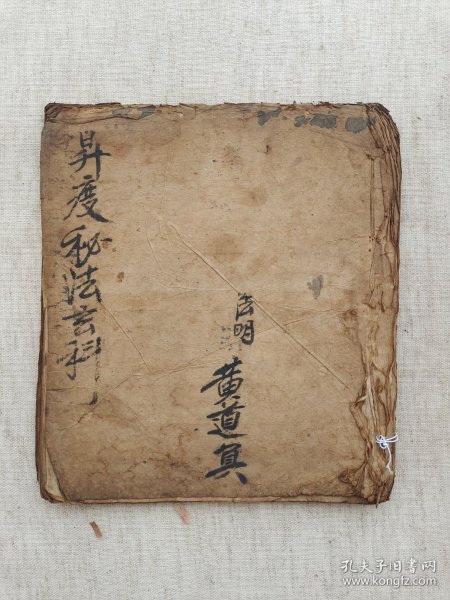 昇度秘法玄科
法明
黄道真
孔夫子旧书网
www.kongfz.com